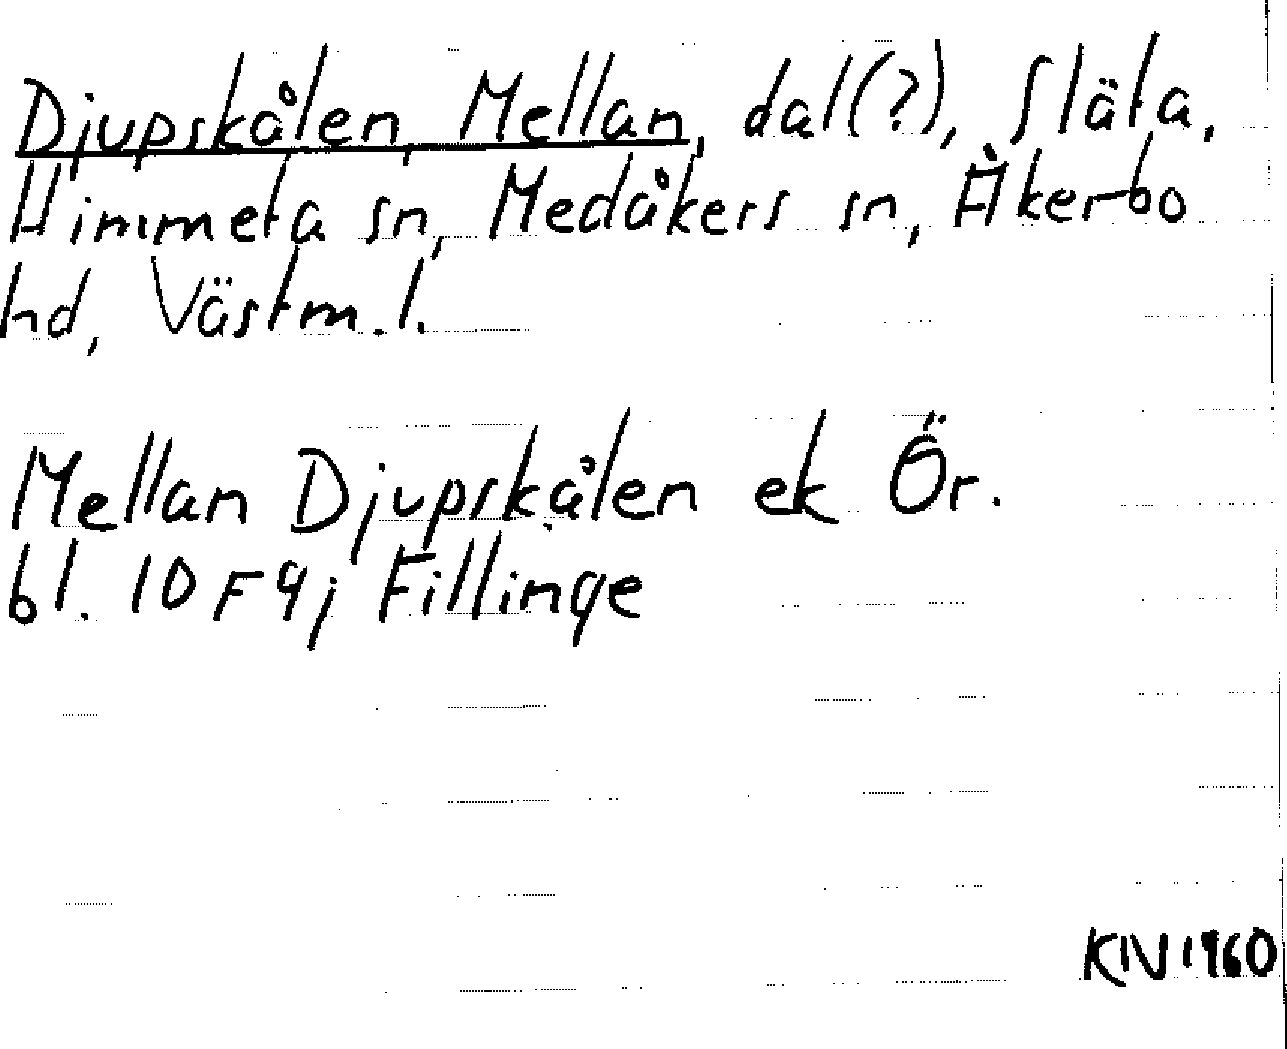 Djupskålen, Mellan, dal(?), Släta,
Himmeta sn, Medåkers sn, Åkerbo
hd, Västm. l.
Mellan Djupskålen ek Ör.
bl. 10 F 9j Fillinge
KIV 1960